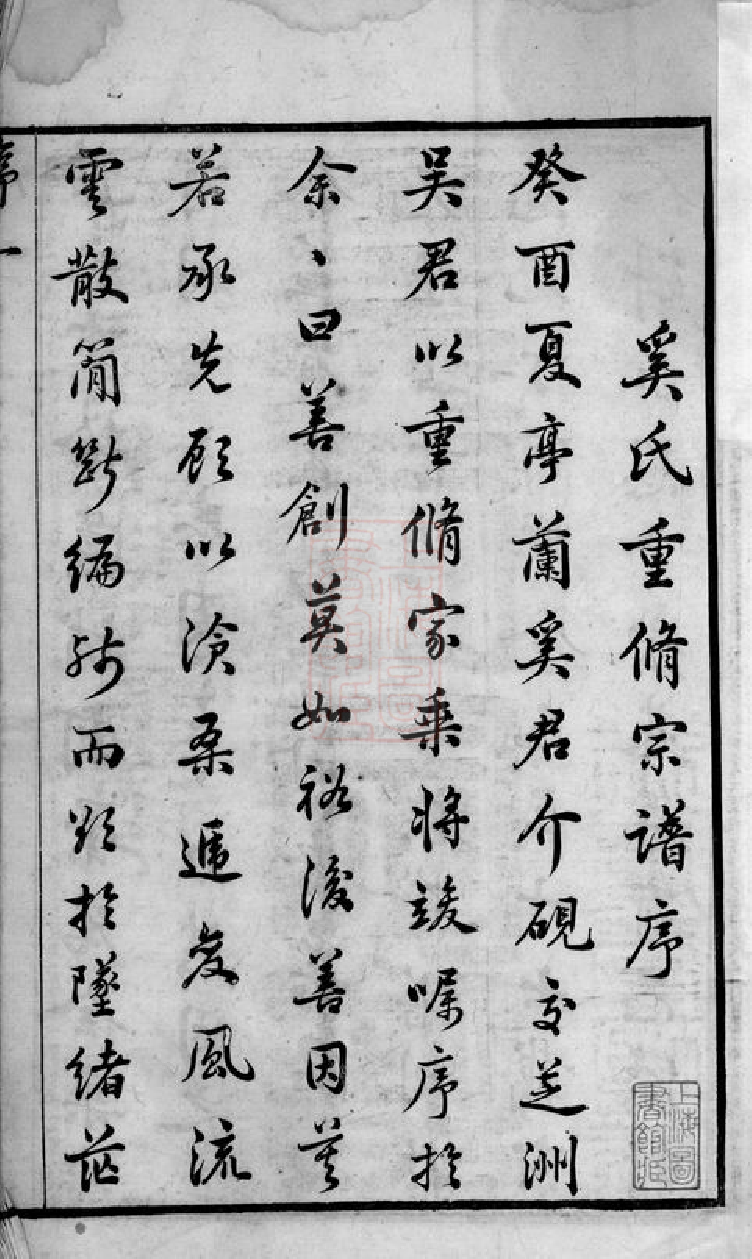 奚氏重脩宗譜序
癸酉夏亭蘭奚君介硯友芝洲
吳君以重脩家乘將竣囑序於
余丶曰善創莫如裕後善因莫
若承先顧以滄桑遞变風流
雲散簡斷編殘而欲於墜緒茫
序一
上海圖
書館藏